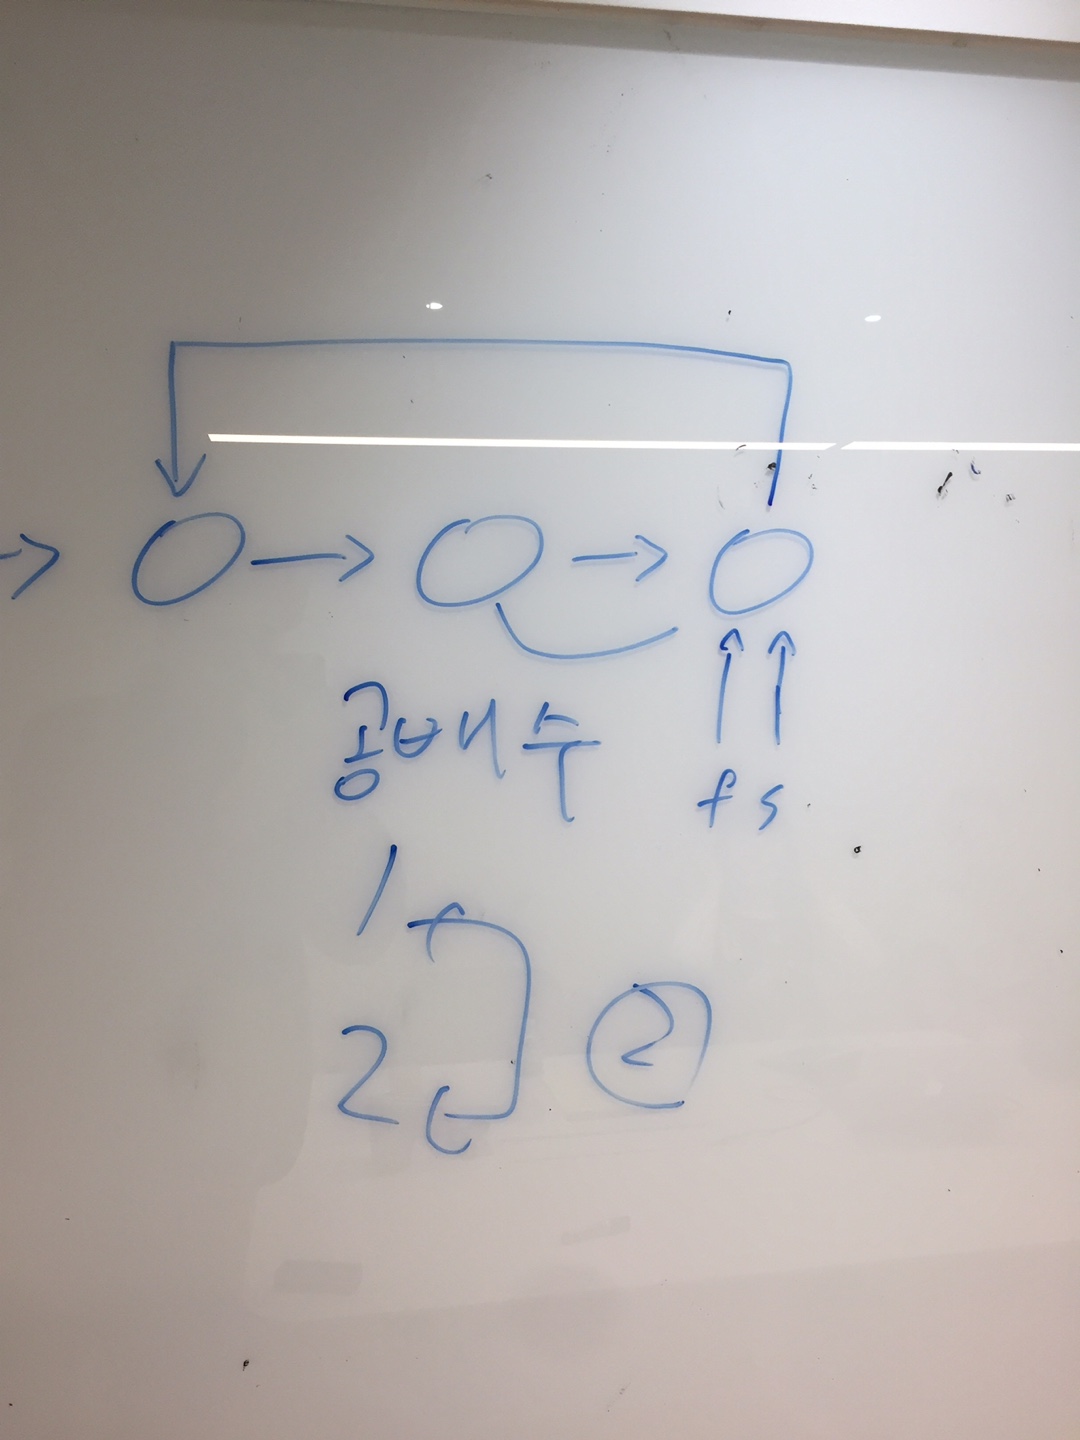 공배수
f s
1
2
②